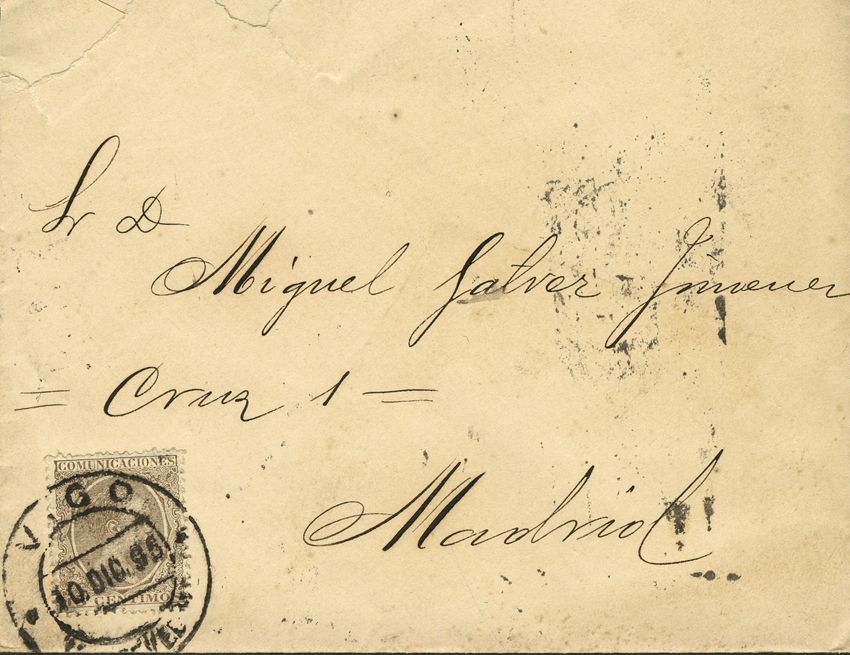 Sr D
Miguel Galvez Jimenez
= Cruz 1 =
Madrid
COMUNICACIONES
CENTIMO
VIGO
10.DIC.95